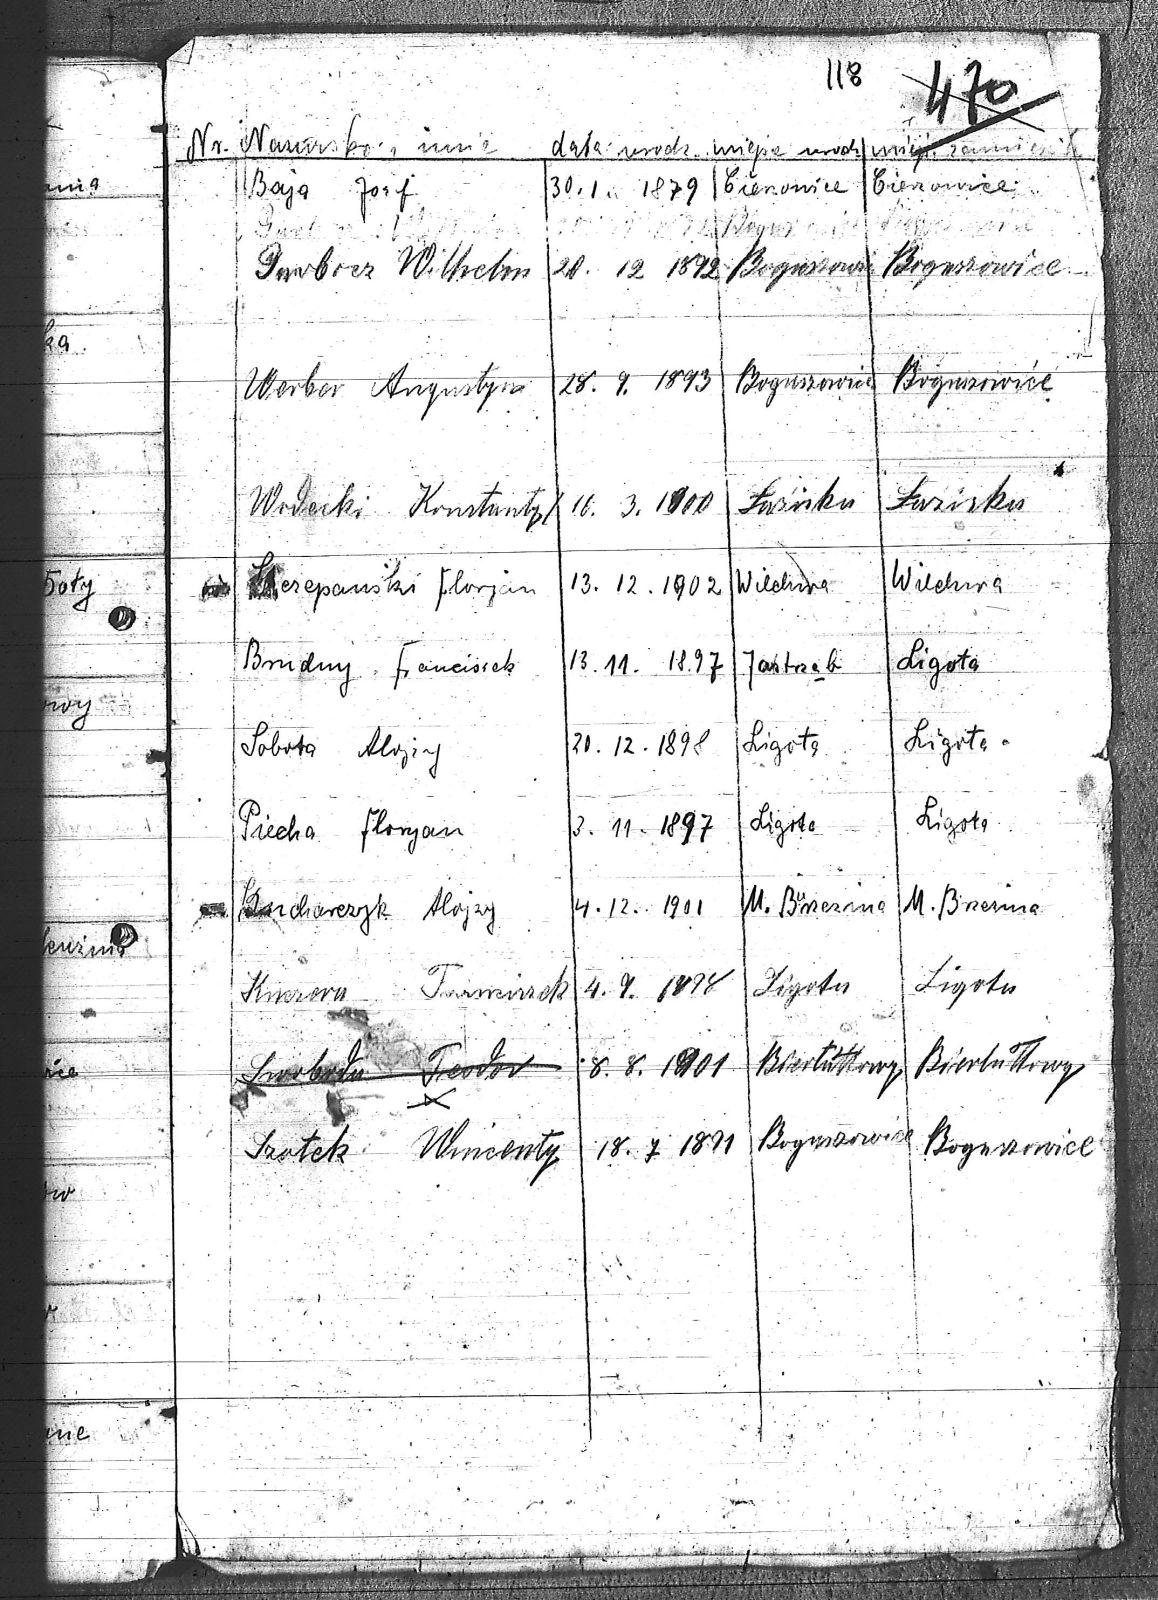 118 470
Nr. Nazwisko i imie data urodz. miejsce urodz. miejs. zamieszk.
Baja Josef 30.1. 1879 Cierowice Cierowice
Wilhelm 20. 12 1892 Boguszowice Boguszowice
Werber Augustyn 28. 9. 1893 Boguszowice Boguszowice
Wodecki Konstanty 16. 3. 1900 Łaziska Łaziska
Szczepański Florjan 13. 12. 1902 Wilchwa Wilchwa
Brudny Franciszek 13. 11. 1897 Jastrzęb Ligota
Sobota Alojzy 20. 12. 1898 Ligota Ligota
Piecha Florjan 3. 11. 1897 Ligota Ligota
Kucharczyk Alojzy 4. 12. 1901 M. Brzezina M. Brzezina
Kuczera Franciszek 4. 9. 1898 Ligota Ligota
Swoboda Teodor 8. 8. 1901 Biertułtowy Biertułtowy
Szotek Wincenty 18. 7 1891 Boguszowice Boguszowice